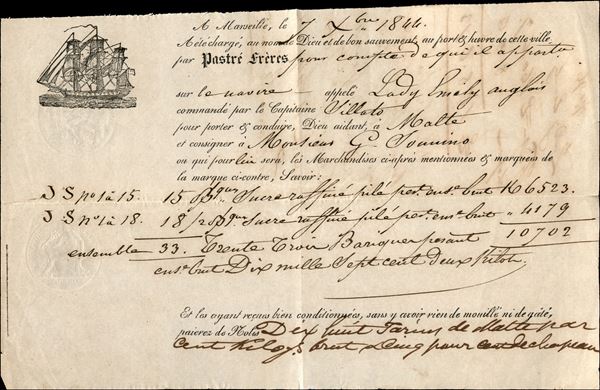 A Marseille, le 7 Xbre 1844.
A été chargé, au nom de Dieu et de bon sauvement, au port & havre de cette ville
par Pastré Frères pour compte de qui il appartt
sur le navire appelé Lady Emély anglais
commandé par le Capitaine
pour porter & conduire, Dieu aidant, à Malte
et consigner à Monsieur G.
ou qui pour lui sera, les Marchandises ci-après mentionnées & marquées de
la marque ci-contre, Savoir:
J S no 1 à 15. 15 Bques Sucre raffiné pilé pest. ense. brut K 6523.
J S No 1 à 18. 18/2 Bques Sucre raffiné pilé pest. ense. brut " 4179
ensemble 33. Trente Trois Bariques pesant 10702
ense. brut Dix mille Sept cent deux Kilos.
Et les ayant reçues bien conditionnées, sans y avoir rien de mouillé ni de gâté,
paierez de Nolis Dix huit Tarins de Malte par
cent Kilogs brut & Cinq pour cent de chapeau